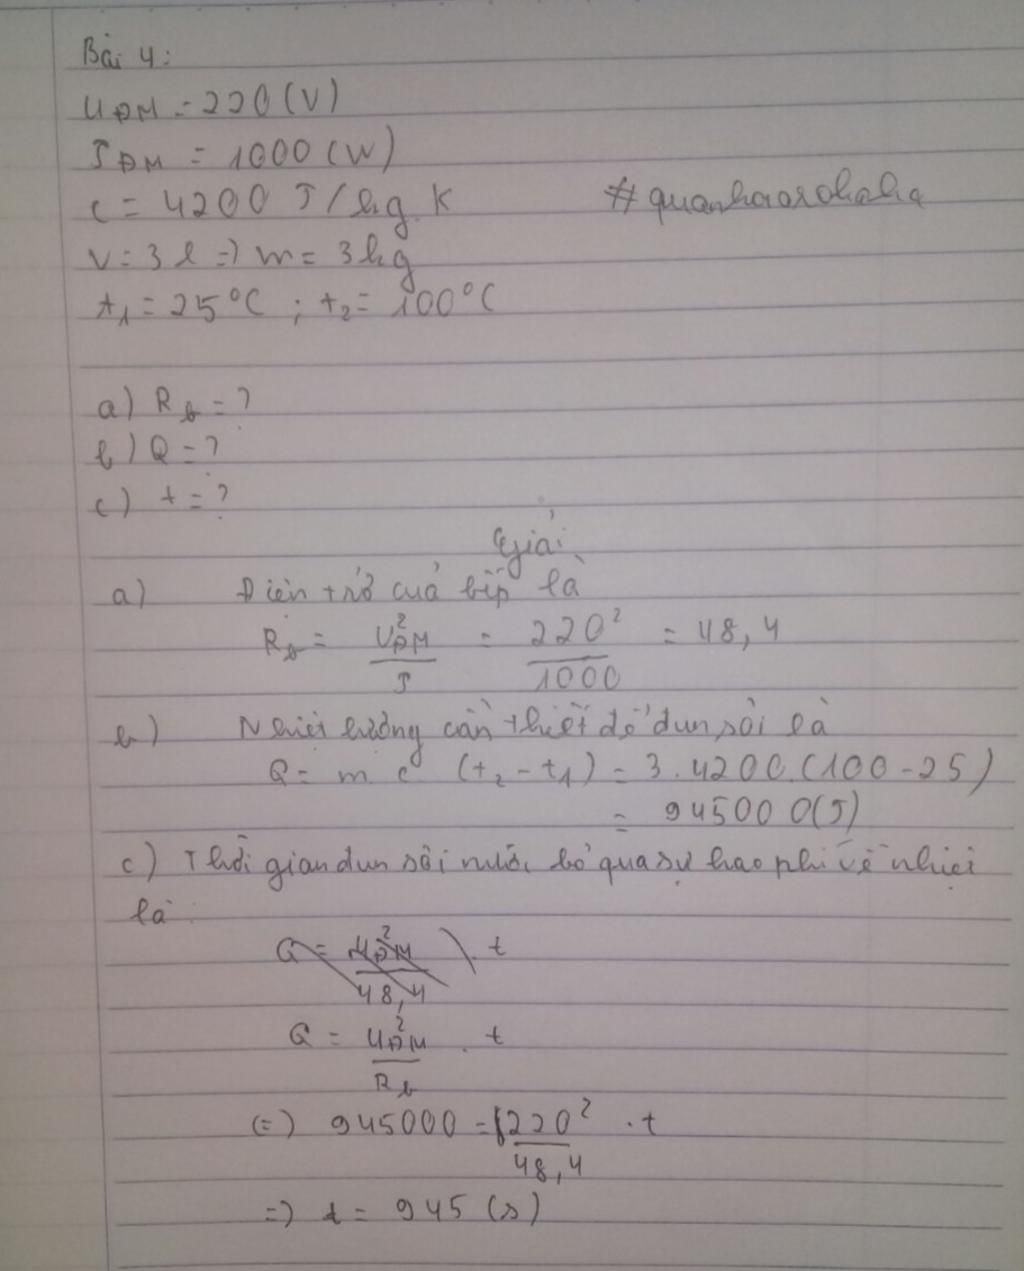 Bài 4:
UĐM = 220 (V)
PĐM = 1000 (W)
c = 4200 J/kg.K
#quanhoarohaha
V = 3 l => m = 3kg
t1 = 25°C ; t2 = 100°C
a) Rb = ?
b) Q = ?
c) t = ?
Giải
a) Điện trở của bếp là
Rb = U²ĐM / P = 220² / 1000 = 48,4
b) Nhiệt lượng cần thiết để đun sôi là
Q = m c (t2 - t1) = 3.4200.(100 - 25)
= 945000 (J)
c) Thời gian đun sôi nước bỏ qua sự hao phí về nhiệt
là:
Q = U²ĐM / 48,4 ) . t
Q = U²ĐM / Rb . t
(=) 945000 = 220² / 48,4 . t
=) t = 945 (s)